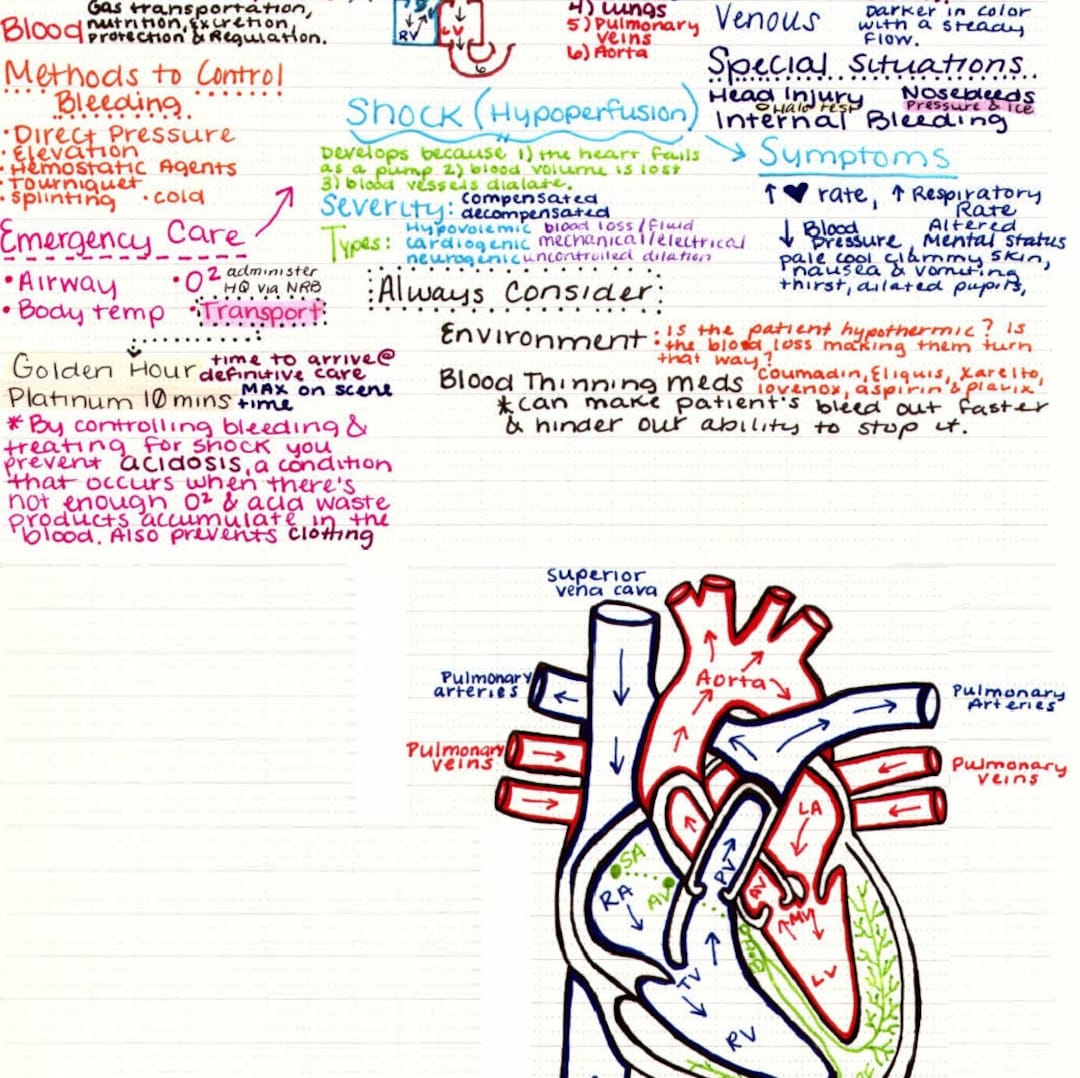 Gas transportation,
Blood nutrition, Excretion,
protection & Regulation.
RV LV
6
4) Lungs
5) Pulmonary
veins
6) Aorta
Venous
Darker in color
with a steady
flow.
Methods to Control
Bleeding
• Direct Pressure
• Elevation
• Hemostatic Agents
• Tourniquet
• Splinting • cold
Special Situations
Head Injury Nosebleeds
Halo test Pressure & Ice
Internal Bleeding
Shock (Hypoperfusion)
Develops because 1) the heart fails
as a pump 2) blood volume is lost
3) blood vessels dialate.
Severity: compensated
decompensated
Types: Hypovolemic blood loss/fluid
cardiogenic mechanical/electrical
neurogenic uncontrolled dilation
Symptoms
↑ ♥ rate, ↑ Respiratory
Rate
↓ Blood Altered
Pressure, Mental status
pale cool clammy skin,
nausea & vomiting
thirst, dilated pupils,
Emergency Care
• Airway • O² administer
HQ via NRB
• Body temp • Transport
Golden Hour time to arrive @
definitive care
Platinum 10 mins MAX on scene
time
* By controlling bleeding &
treating for shock you
prevent acidosis, a condition
that occurs when there's
not enough O² & acid waste
products accumulate in the
blood. Also prevents clotting
Always Consider
Environment: is the patient hypothermic? Is
the blood loss making them turn
that way?
Blood Thinning meds Coumadin, Eliquis, Xarelto,
lovenox, aspirin & plavix
* can make patient's bleed out faster
& hinder our ability to stop it.
Superior
vena cava
Pulmonary
arteries
Aorta
Pulmonary
Arteries
Pulmonary
veins
Pulmonary
veins
LA
SA
PV
RA
AV
AV
MV
LV
TV
RV